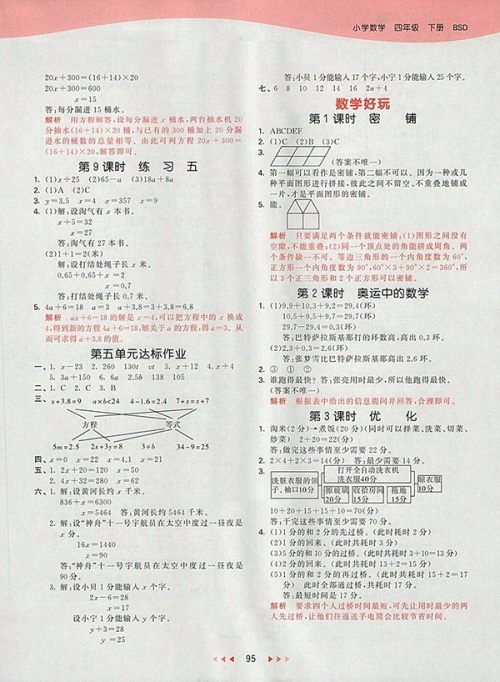 小学数学 四年级 下册 BSD
20x+300=(16+14)×20
20x+300=600
x=15
答:每分漏进 15 桶水。
解析 用方程解答,设每分漏进 x 桶水,两台抽水机 20
分抽水(16+14)×20桶,与已有的 300 桶加上 20 分漏
进水的桶数的总量相等。由此可列方程 20x+300=
(16+14)×20,解答即可。
第9课时 练习五
1. (1)x÷25 (2)65-a (3)18a+8a
2. (1)A (2)C
3. y=3.5 x=4 x=357 x=9
4. (1)解:设淘气有 x 本书。
x+5=32
x=27
答:淘气有 27 本书。
(2)1+1=2(米)
解:设打结处绳子长 x 米。
0.65+0.65+x=2
x=0.7
答:打结处绳子长 0.7 米。
5. 4a+6=18 a=3 a+3.8=3+3.8=6.8
解析 ax+6=18 的解是 x=4,可以把方程中的 x 换成
4,得到新的方程 4a+6=18,解关于 a 的方程,得 a=3。从
而可求得 a+3.8 的值。
第五单元达标作业
一、1. x-23 2. 260 130t vt 3. x+12 4. x+4
5. 3a+150 6. 6a 2.5b 138 105
二、1. C 2. C 3. B
三、x+3.8=9 a×b<24 4-1.6=2.4 7+x=s+7
方程 等式
5m=2.5 2x+3y=8 3÷b 34-9=25
四、x=0 x=22 x=4.1 x=21
五、1. 2x+20=120 x=50
2. 4x+32=280 x=62
六、1. 解:设黄河长约 x 千米。
836+x=6300
x=5464 答:黄河长约 5464 千米。
2. 解:设“神舟”十一号宇航员在太空中度过一昼夜是
x 分。
16x=1440
x=90
答:“神舟”十一号宇航员在太空中度过一昼夜是
90分。
3. 解:设小贝 1 分能输入 x 个字。
2x-6=28
x=17
设小宁 1 分能输入 y 个字。
y+3=28
y=25
答:小贝 1 分能输入 17 个字,小宁 1 分能输入 25 个字。
七、6 8 10 12 14 16 2n+4
数学好玩
第1课时 密铺
1. ABCDEF
2. (1)C (2)B (3)C
3.
(答案不唯一)
4. 第一幅可以看作是密铺,第二幅不可以。因为一种或几
种平面图形进行拼接,彼此之间不留空、不重叠地铺成
一片,才是平面图形的密铺。
5. 能。
解析 只要满足两个条件就能密铺:(1)图形之间没有
空隙,不能重叠;(2)同一个顶点处的角能拼成周角。两
个条件缺一不可。等边三角形的一个内角度数为 60°,
正方形一个内角度数为 90°,60°×3+90°×2=360°,所
以 3 个正三角形和 2 个正方形可以密铺。
第2课时 奥运中的数学
1. (1)9.9+10.3+9.2=29.4(环)
10.5+9.5+9.7=29.7(环)
29.7-29.4=0.3(环)
答:巴特萨拉斯基那打的环数高,高出 0.3 环。
(2)2.3+0.3=2.6(环)
答:张梦雪比巴特萨拉斯基那高出 2.6 环。
2. ③ ① ②
3. 谁跑得最快? 答:张亮用时最少,所以他跑得最快。
(答案不唯一)
解析 根据表中给出的信息提问并回答,合理即可。
第3课时 优化
1. 淘米(2分)→煮饭(20分)(同时可以择菜、洗菜、切菜、
炒菜) 2+20=22(分)
答:做完这些事情至少需要 22 分。
2. 2×4÷2×3=144(秒) 答:最少需要 14 分。
3. 打开全自动洗衣机
洗衣服40分
洗脏衣服的领
子、袖口10分
擦玻璃
20分
收拾房间
15分
拖地
15分
晾衣服
10分
10+20+15+15+10=70(分)
答:干完这件事情至少需要 70 分。
4. (1)1 分的和 2 分的先过桥。(此时耗时 2 分)
(2)1 分的回来。(此时共耗时 3 分)
(3)5 分的和 10 分的过桥。(此时共耗时 3+10=13 分)
(4)2 分的回来。(此时共耗时 13+2=15 分)
(5)1 分的和 2 分的再过桥。(此时共耗时 15+2=17
分) 此时全部通过桥,共耗时 17 分。
答:最短时间是 17 分。
解析 要求四个人过桥时间最短,可先让用时最少的两
人先过桥,让他们往返送手电筒会比较节省时间。
95